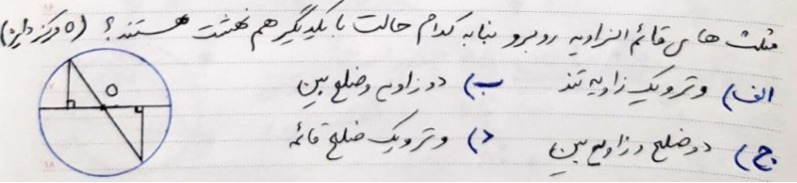 مثلث های قائم الزاویه روبرو بنابه کدام حالت با یکدیگر هم نهشت هستند؟ (O مرکز دایره)
الف) وتر و یک زاویه تند ب) دو زاویه و ضلع بین
ج) دو ضلع و زاویه بین د) وتر و یک ضلع قائمه
O